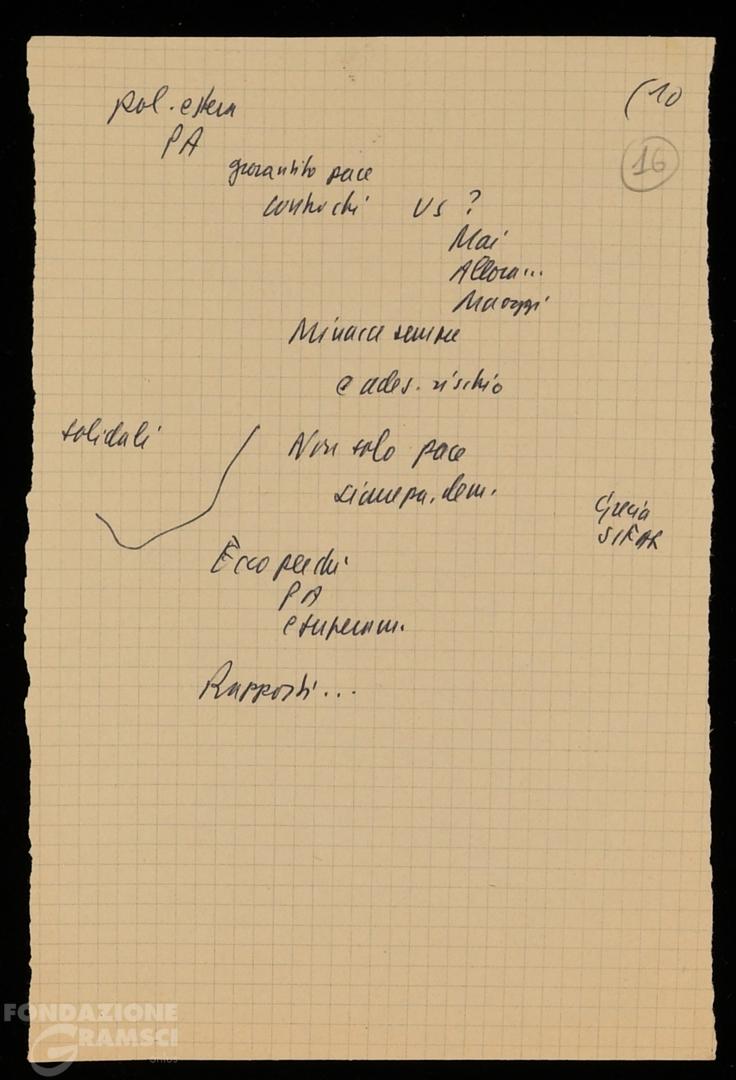 pol. estera
(10
PA
16
garantito pace
contro chi US ?
Mai
Allora...
Ma oggi
Minacce sempre
e ades. rischio
solidali
Non solo pace
sicurezza, dem.
Grecia
SIFAR
Ecco perché
PA
e superam.
Rapporti...
FONDAZIONE
GRAMSCI